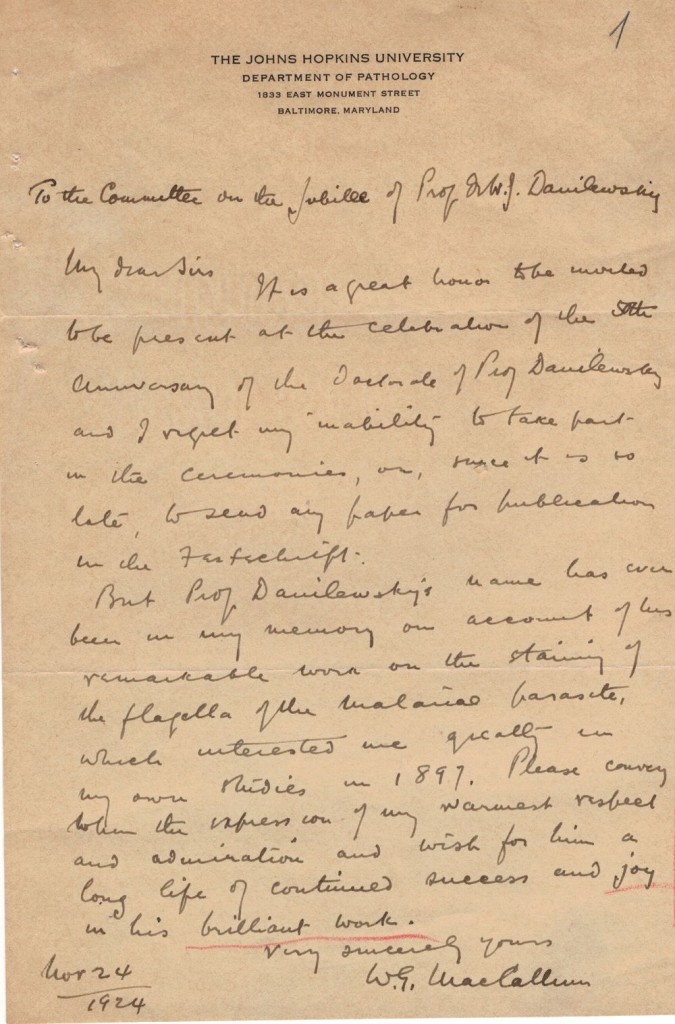 1
THE JOHNS HOPKINS UNIVERSITY
DEPARTMENT OF PATHOLOGY
1833 EAST MONUMENT STREET
BALTIMORE, MARYLAND
To the Committee on the Jubilee of Prof Dr W.J. Danilewsky
My dear Sirs It is a great honor to be invited
to be present at the celebration of the 50th
anniversary of the doctorate of Prof Danilewsky
and I regret my inability to take part
in the ceremonies, or, since it is so
late, to send any paper for publication
in the Festschrift.
But Prof Danilewsky's name has ever
been in my memory on account of his
remarkable work on the staining of
the flagella of the malarial parasite,
which interested me greatly in
my own studies in 1897. Please convey
to him the expression of my warmest respect
and admiration and wish for him a
long life of continued success and joy
in his brilliant work.
Very sincerely yours
W.G. MacCallum
Nov 24
1924